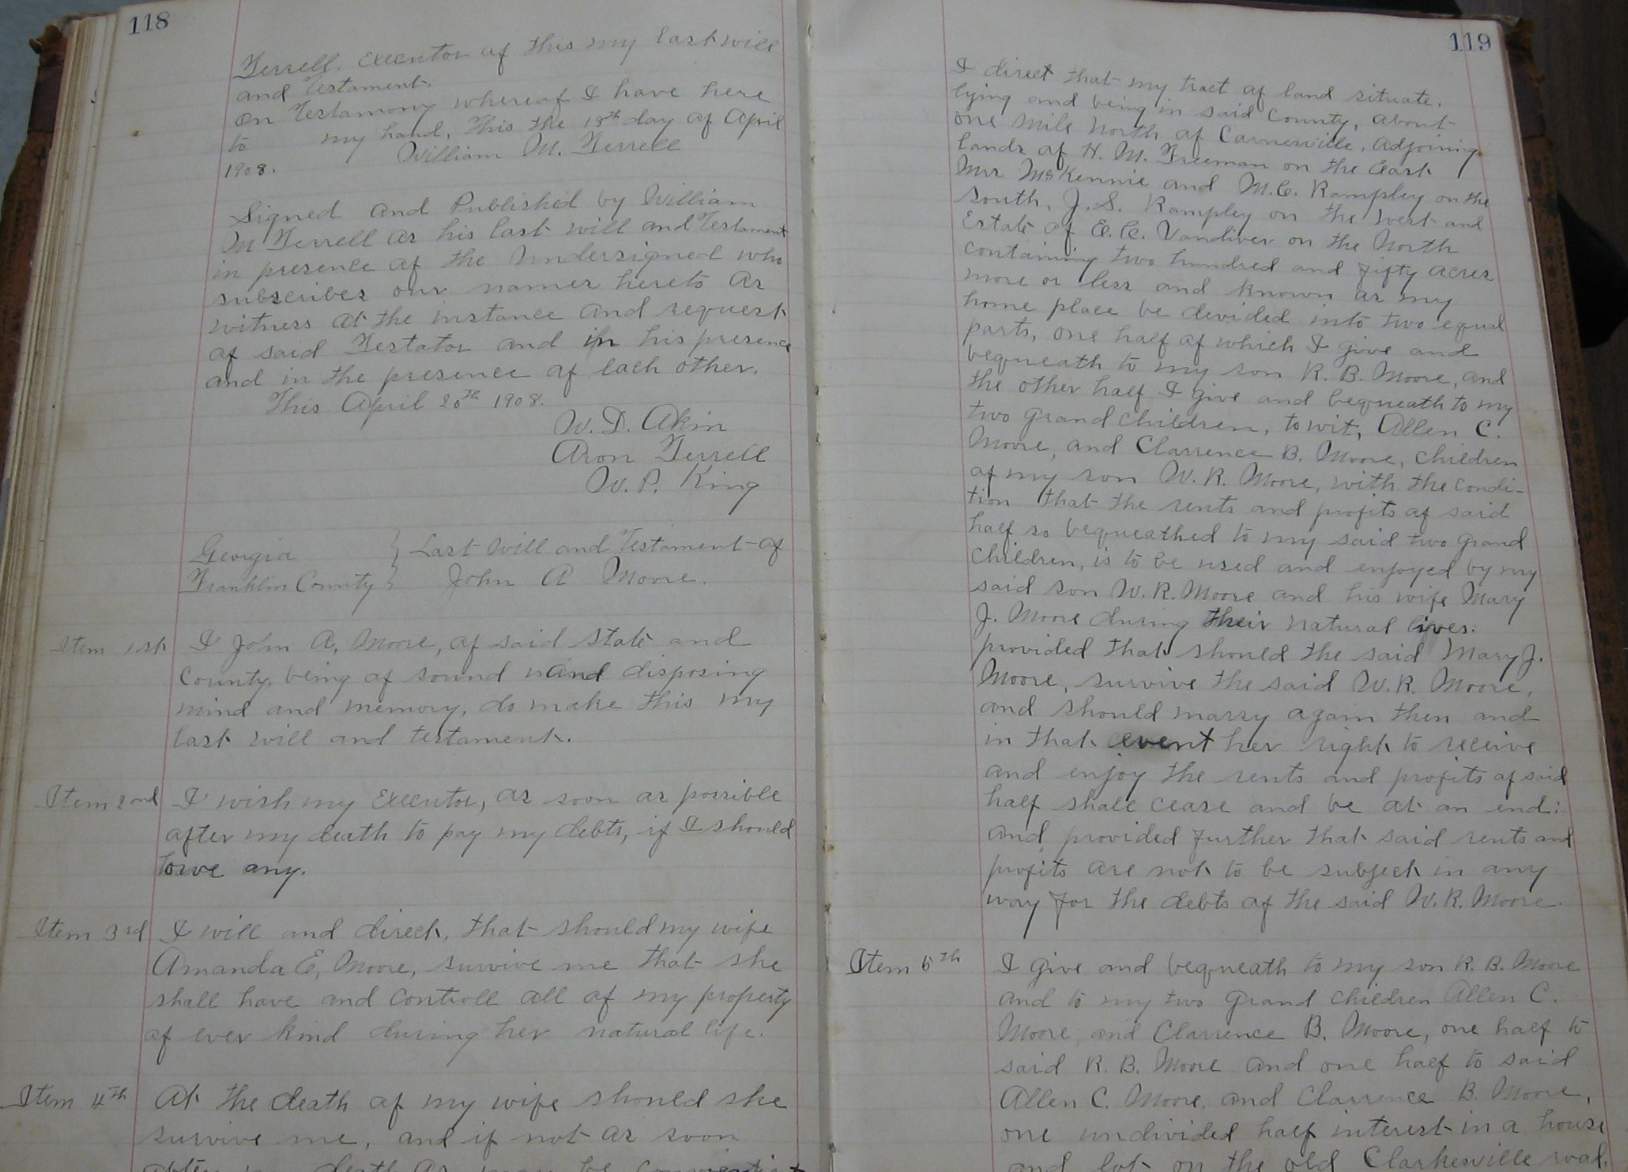 118
Terrell. Executor of this my last will
and Testament.
On Testamony whereof I have here
to my hand, This the 18th day of April
1908. William M. Terrell
Signed and Published by William
M Terrell as his last will and Testament
in presence of the undersigned who
subscribes our names hereto as
witness at the instance and request
of said Testator and in his presence
and in the presence of each other.
This April 20th 1908.
W. D. Akin
Aron Terrell
W. P. King
Georgia } Last Will and Testament of
Franklin County } John A Moore.
Item 1st I John A. Moore, of said State and
County, being of sound and disposing
mind and memory, do make this my
last will and testament.
Item 2nd I wish my Executor, as soon as possible
after my death to pay my debts, if I should
owe any.
Item 3rd I will and direct, that should my wife
Amanda E, Moore, survive me that she
shall have and controll all of my property
of ever kind during her natural life.
Item 4th At the death of my wife should she
survive me, and if not as soon
after my death as may be
119
I direct that my tract of land situate,
lying and being in said County, about
one mile North of Carnesville, adjoining
lands of H. M. Freeman on the East
Mrs McKennie and M.C. Rampley on the
south, J. S. Rampley on the West and
Estate of E. C. Vandiver on the North
containing two hundred and fifty acres
more or less and known as my
home place be devided into two equal
parts, one half of which I give and
bequeath to my son R. B. Moore, and
the other half I give and bequeath to my
two Grand Children, to wit, Allen C.
Moore, and Clarrence B. Moore, Children
of my son W. R. Moore, with the condi-
tion that the rents and profits of said
half so bequeathed to my said two Grand
Children, is to be used and enjoyed by my
said son W. R. Moore and his wife Mary
J. Moore during their natural lives:
provided that should the said Mary J.
Moore, survive the said W. R. Moore,
and should marry again then and
in that event her right to receive
and enjoy the rents and profits of said
half shall cease and be at an end:
and provided further that said rents and
profits are not to be subject in any
way for the debts of the said W. R. Moore.
Item 5th I give and bequeath to my son R. B. Moore
and to my two Grand Children Allen C.
Moore, and Clarrence B. Moore, one half to
said R. B. Moore and one half to said
Allen C. Moore, and Clarrence B. Moore,
one undivided half interest in a house
and lot on the old Clarkesville road.